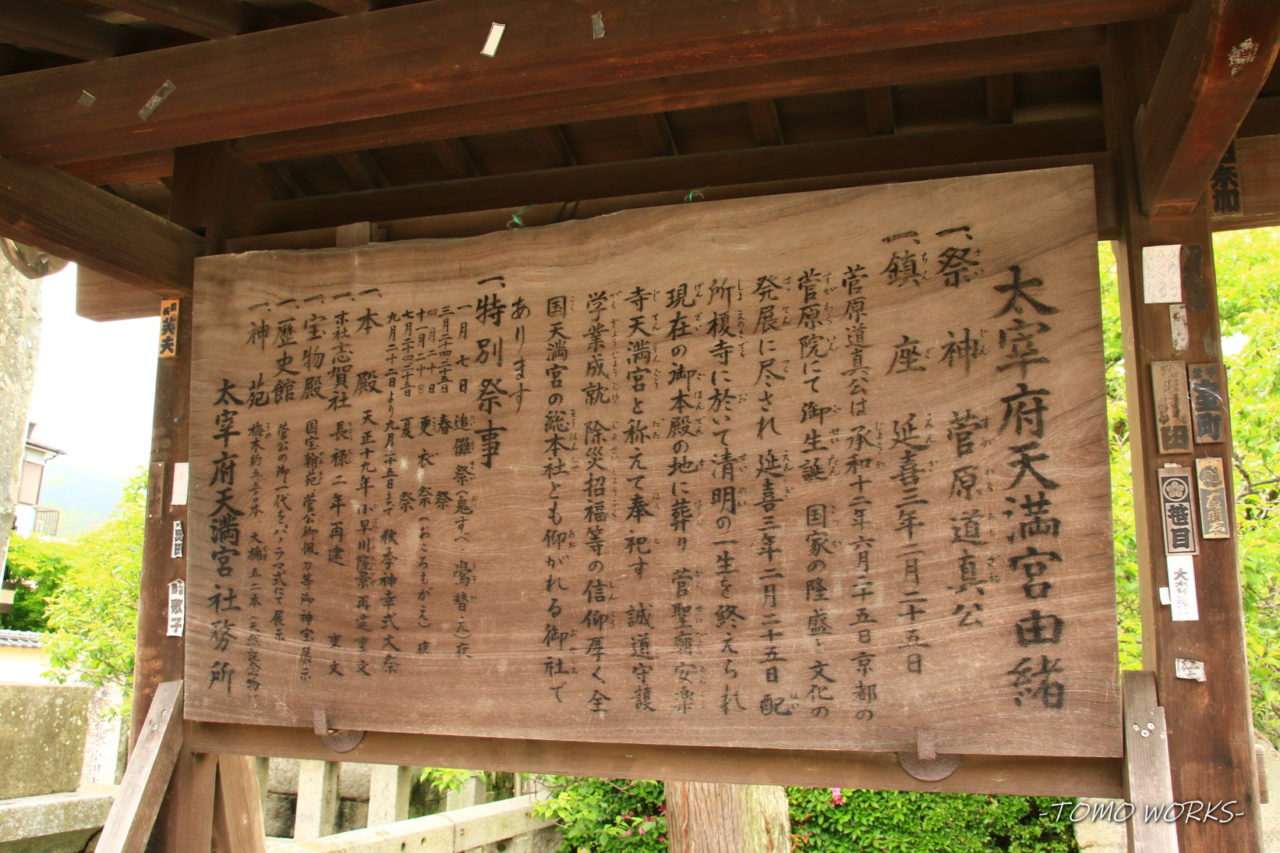 太宰府天満宮由緒
一、祭神 菅原道真公
一、鎮座 延喜三年二月二十五日
菅原道真公は承和十二年六月二十五日京都の
菅原院にて御生誕 国家の隆盛、文化の
発展に尽され 延喜三年二月二十五日 配
所榎寺に於いて清明の一生を終えられ
現在の御本殿の地に葬り 菅聖廟安楽
寺天満宮と称えて奉祀す 誠道守護
学業成就 除災招福等の信仰厚く全
国天満宮の総本社とも仰がれる御社で
あります
一、特別祭事
一月 七日 追儺祭(鬼すべ 鷽替え)夜
三月二十四二十五日 春祭
四月二十日
十一月二十日 更衣祭(おころもがえ)夜
七月二十四二十五日 夏祭
九月二十二日より九月二十五日まで 秋季神幸式大祭
一、本殿 天正十九年小早川隆景再建重文
一、末社志賀社 長禄二年再建 重文
一、宝物殿 国宝翰苑 菅公御佩刀等御神宝展示
一、歴史館 菅公の御一代をジオラマ式にて展示
一、神苑
太宰府天満宮社務所
笹目
-TOMO WORKS-